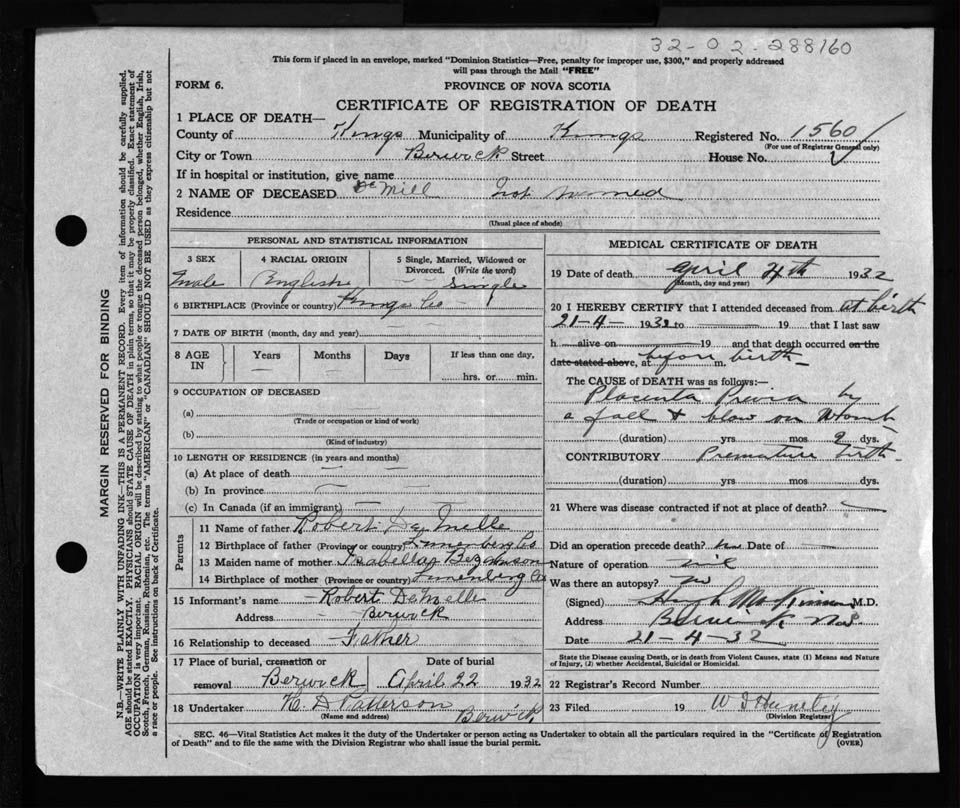 32-02-288160
This form if placed in an envelope, marked "Dominion Statistics—Free, penalty for improper use, $300," and properly addressed
will pass through the Mail "FREE"
FORM 6.
PROVINCE OF NOVA SCOTIA
CERTIFICATE OF REGISTRATION OF DEATH
1 PLACE OF DEATH—
County of Kings Municipality of Kings Registered No. 1560
(For use of Registrar General only)
City or Town Berwick Street House No.
If in hospital or institution, give name
2 NAME OF DECEASED De Mill Not named
Residence
(Usual place of abode)
PERSONAL AND STATISTICAL INFORMATION
3 SEX 4 RACIAL ORIGIN 5 Single, Married, Widowed or Divorced. (Write the word)
Male English Single
6 BIRTHPLACE (Province or country) Kings Co
7 DATE OF BIRTH (month, day and year)
8 AGE IN Years Months Days If less than one day,
— — hrs. or min.
9 OCCUPATION OF DECEASED
(a)
(Trade or occupation or kind of work)
(b)
(Kind of industry)
10 LENGTH OF RESIDENCE (in years and months)
(a) At place of death —
(b) In province —
(c) In Canada (if an immigrant) —
Parents
11 Name of father Robert De Melle
12 Birthplace of father (Province or country) Lunenberg Co
13 Maiden name of mother Isabella Bezanson
14 Birthplace of mother (Province or country) Lunenberg Co
15 Informant's name Robert DeMelle
Address Berwick
16 Relationship to deceased Father
17 Place of burial, cremation or removal Berwick Date of burial April 22 1932
18 Undertaker H. D Patterson Berwick
(Name and address)
MEDICAL CERTIFICATE OF DEATH
19 Date of death April 4th 1932
(Month, day and year)
20 I HEREBY CERTIFY that I attended deceased from at birth
21-4- 1932 to 19 that I last saw
h alive on 19 and that death occurred on the
date stated above, at before birth m.
The CAUSE of DEATH was as follows:—
Placenta Previa by
a fall & blow on Womb
(duration) yrs mos 2 dys.
CONTRIBUTORY Premature birth
(duration) yrs mos dys.
21 Where was disease contracted if not at place of death?
Did an operation precede death? no Date of —
Nature of operation nil
Was there an autopsy? no
(Signed) Hugh McKinnon M.D.
Address Berwick NS
Date 21-4-32
State the Disease causing Death, or in death from Violent Causes, state (1) Means and Nature
of Injury, (2) whether Accidental, Suicidal or Homicidal.
22 Registrar's Record Number
23 Filed 19
(Division Registrar)
SEC. 46—Vital Statistics Act makes it the duty of the Undertaker or person acting as Undertaker to obtain all the particulars required in the "Certificate of Registration
of Death" and to file the same with the Division Registrar who shall issue the burial permit. (OVER)
MARGIN RESERVED FOR BINDING
N.B.—WRITE PLAINLY WITH UNFADING INK—THIS IS A PERMANENT RECORD. Every item of information should be carefully supplied.
AGE should be stated EXACTLY. PHYSICIANS should STATE CAUSE OF DEATH in plain terms, so that it may be properly classified. Exact statement of
OCCUPATION is very important. RACIAL ORIGIN will be described by stating to what people or tongue the deceased person belonged, whether English, Irish,
Scotch, French, German, Russian, Ruthenian, etc. The terms "AMERICAN" or "CANADIAN" SHOULD NOT BE USED as they express citizenship but not
a race or people. See instructions on back of Certificate.